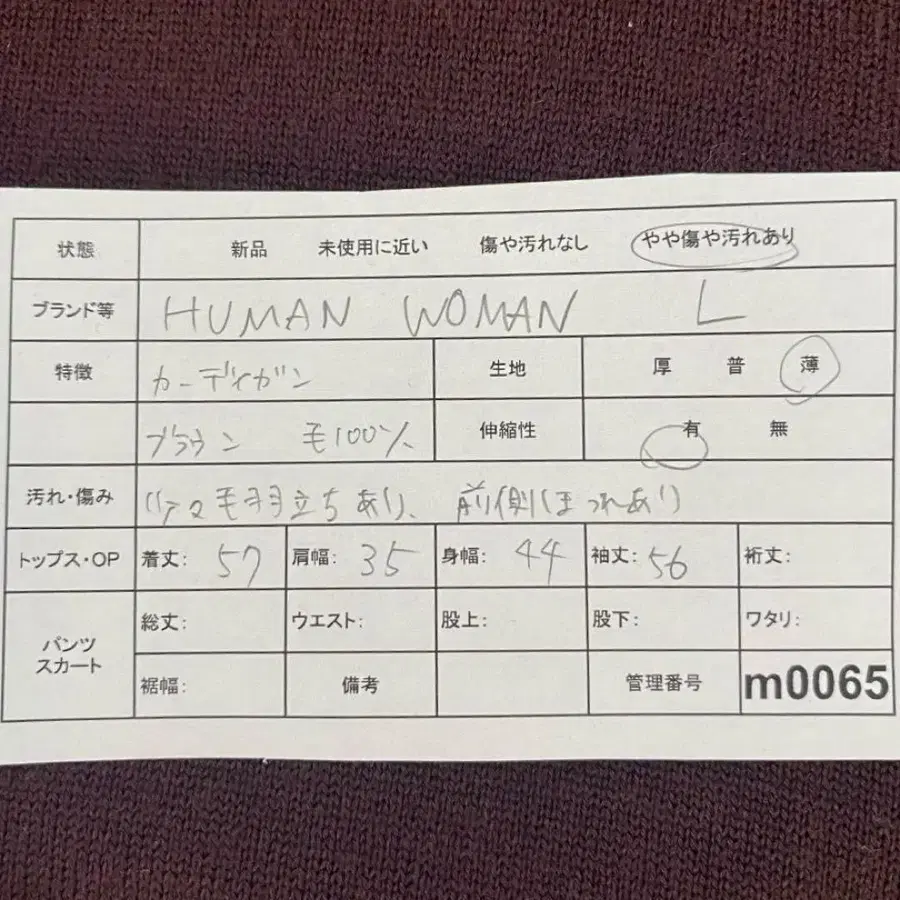 状態 新品 未使用に近い 傷や汚れなし やや傷や汚れあり
ブランド等 HUMAN WOMAN L
特徴 カーディガン 生地 厚 普 薄
ブラウン 毛100% 伸縮性 有 無
汚れ・傷み 毛羽立ちあり、前側ほつれあり
トップス・OP 着丈: 57 肩幅: 35 身幅: 44 袖丈: 56 裄丈:
パンツ スカート 総丈: ウエスト: 股上: 股下: ワタリ:
裾幅: 備考 管理番号 m0065